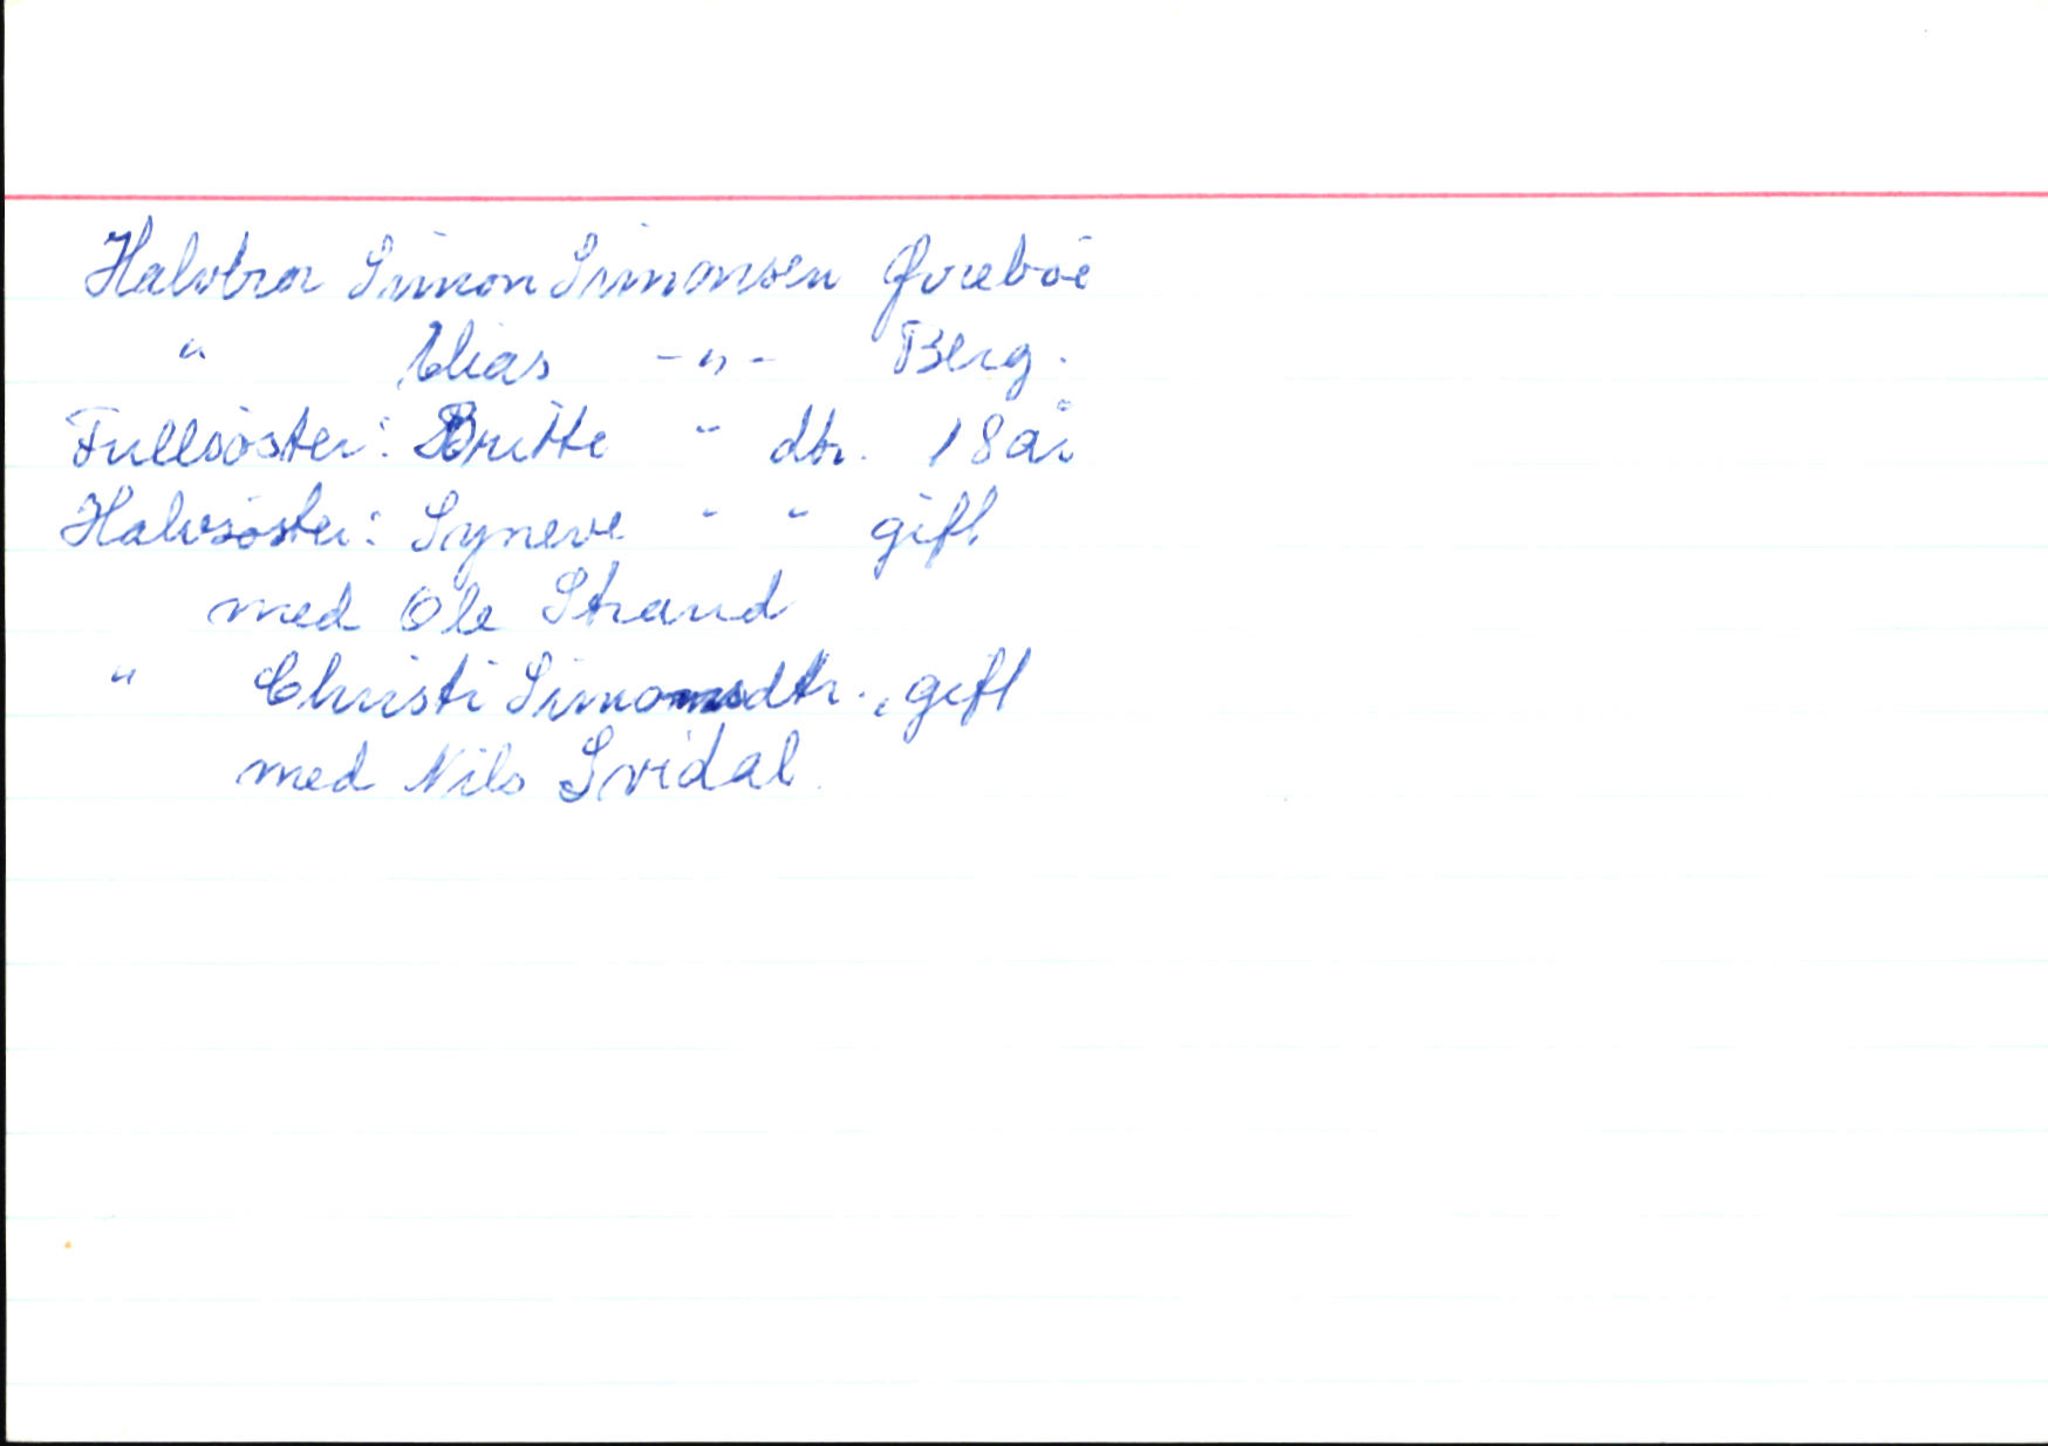 Halvbror Simon Simonsen Øvreböe
" Elias -"- Berg.
Fullsöster: Britte " dtr. 18 år
Halvsöster: Syneve " " gift
med Ole Strand
" Christi Simonsdtr., gift
med Nils Svidal.